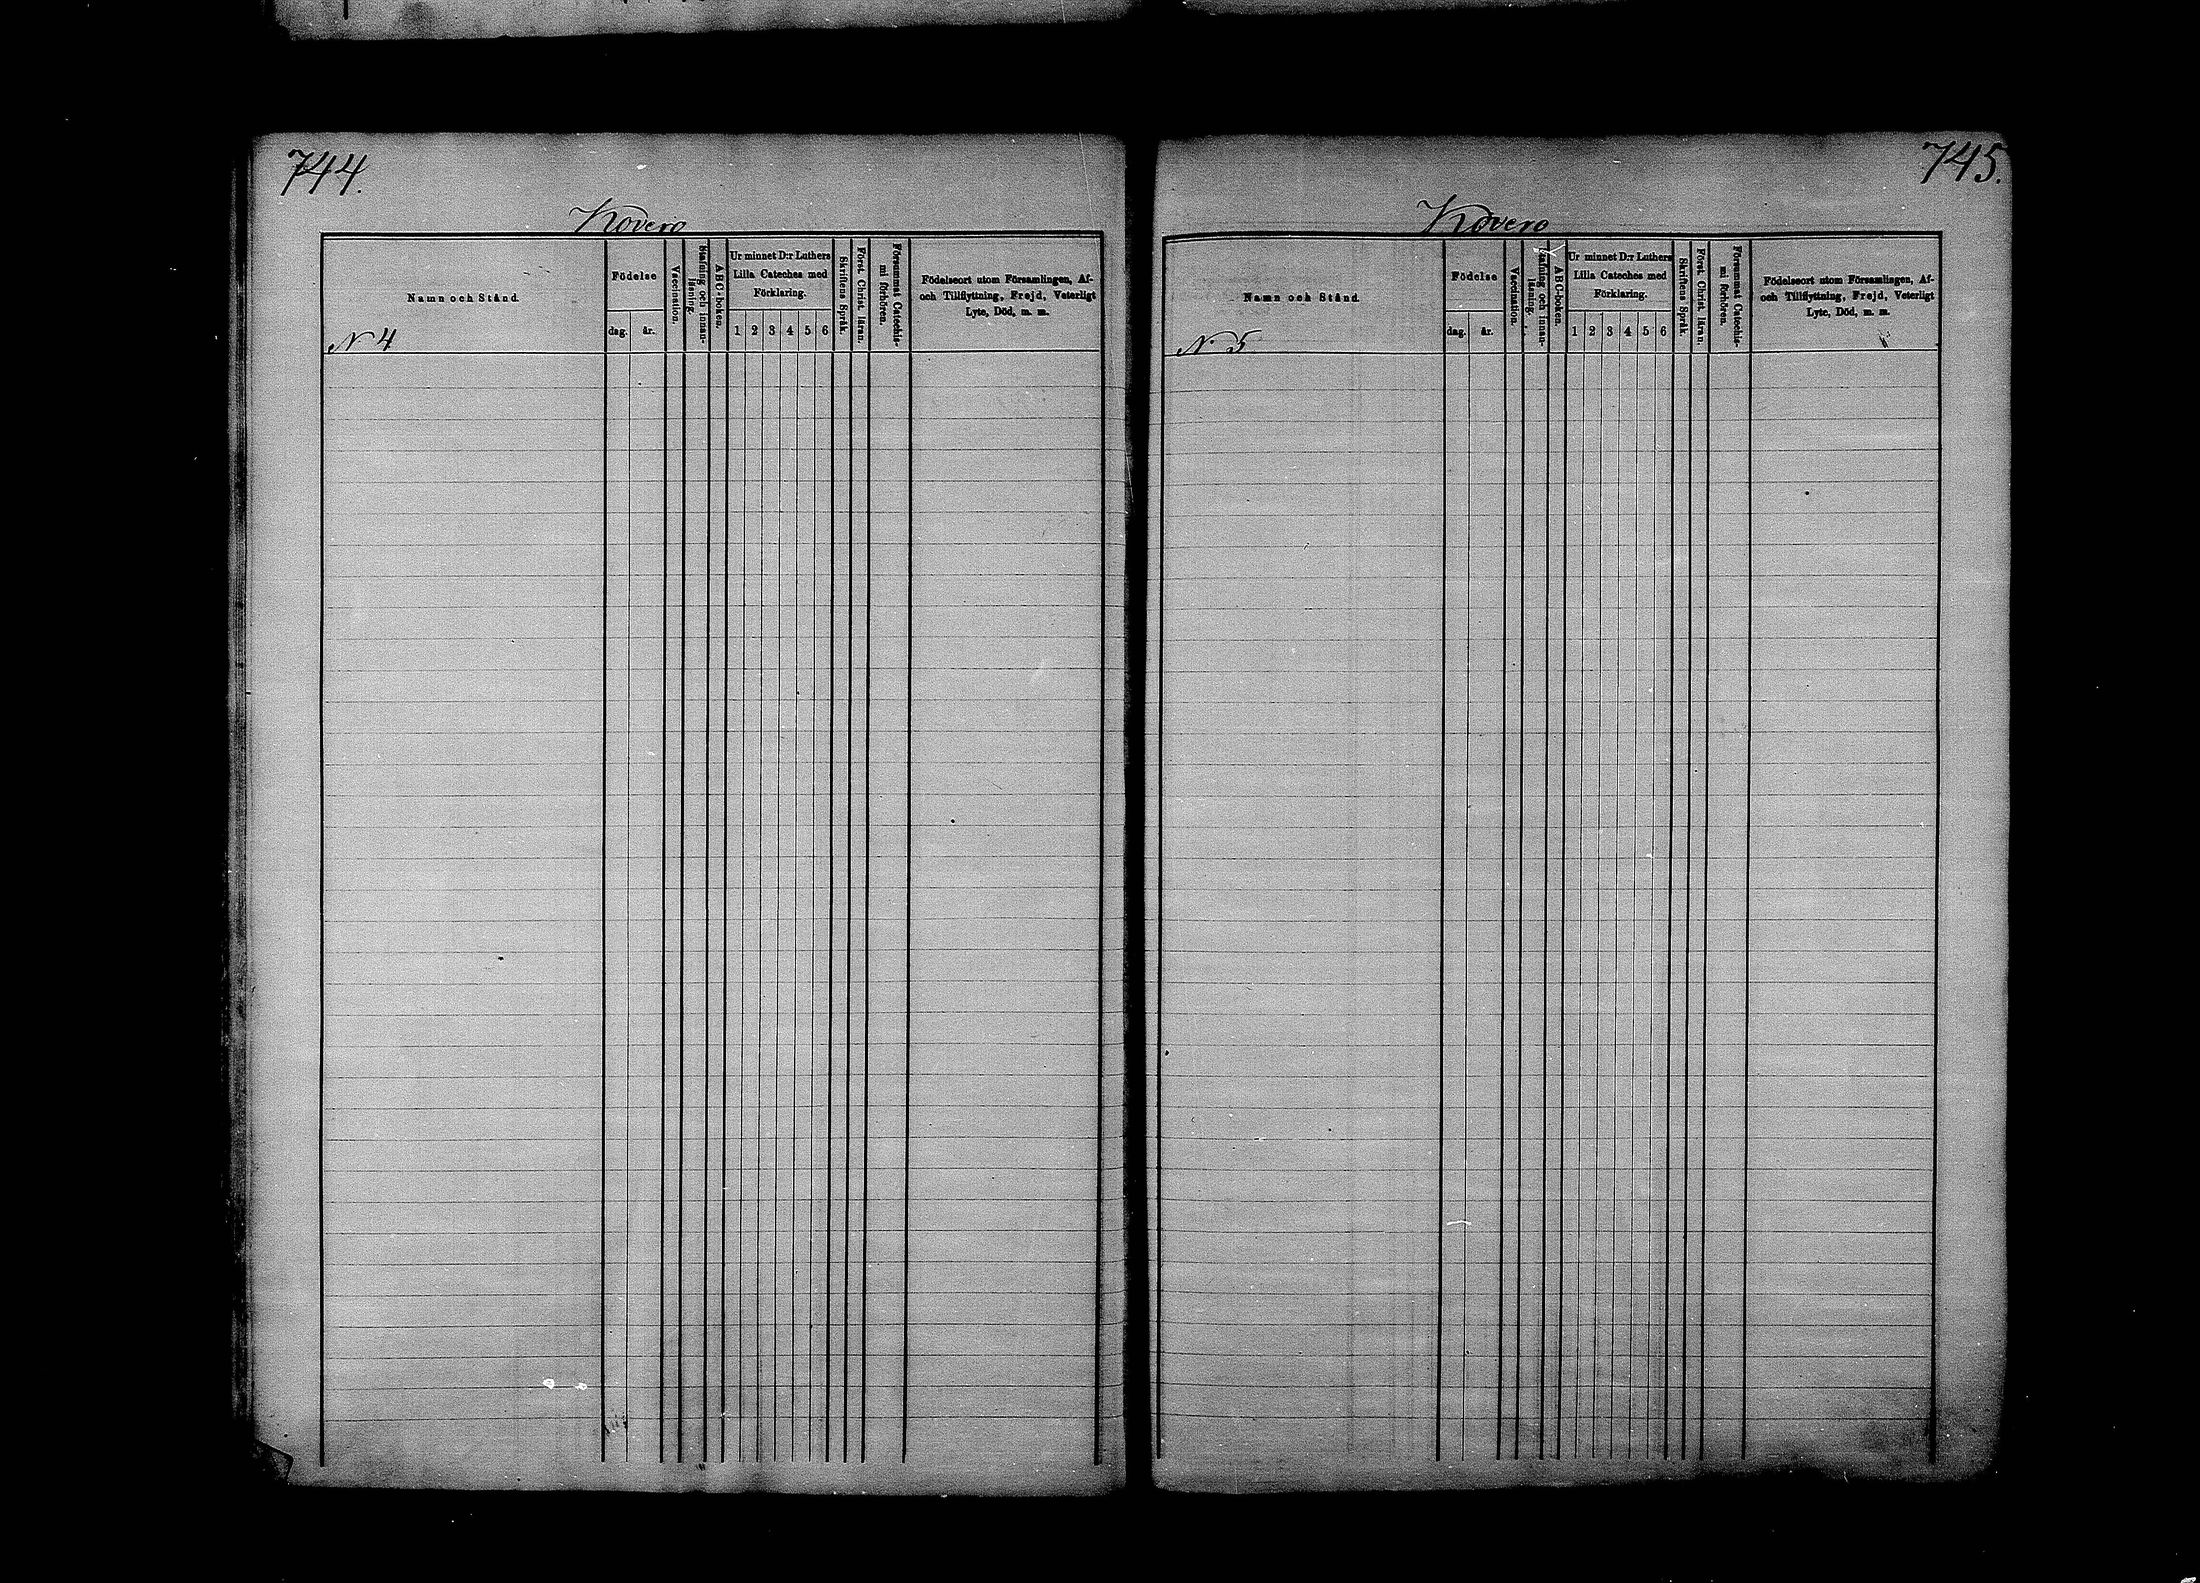 744.
Kovero
Namn och Stånd.
N 4
Födelse
dag. år.
Vaccination.
Stafning och innan-
läsning.
ABC-boken.
Ur minnet D:r Luthers
Lilla Cateches med
Förklaring.
1 2 3 4 5 6
Skriftens Språk.
Först. Christ. läran.
Försummat Catechis-
mi förhören.
Födelseort utom Församlingen, Af-
och Tillflyttning, Frejd, Veterligt
Lyte, Död, m. m.
745.
Kovero
Namn och Stånd.
N 5
Födelse
dag. år.
Vaccination.
Stafning och innan-
läsning.
ABC-boken.
Ur minnet D:r Luthers
Lilla Cateches med
Förklaring.
1 2 3 4 5 6
Skriftens Språk.
Först. Christ. läran.
Försummat Catechis-
mi förhören.
Födelseort utom Församlingen, Af-
och Tillflyttning, Frejd, Veterligt
Lyte, Död, m. m.